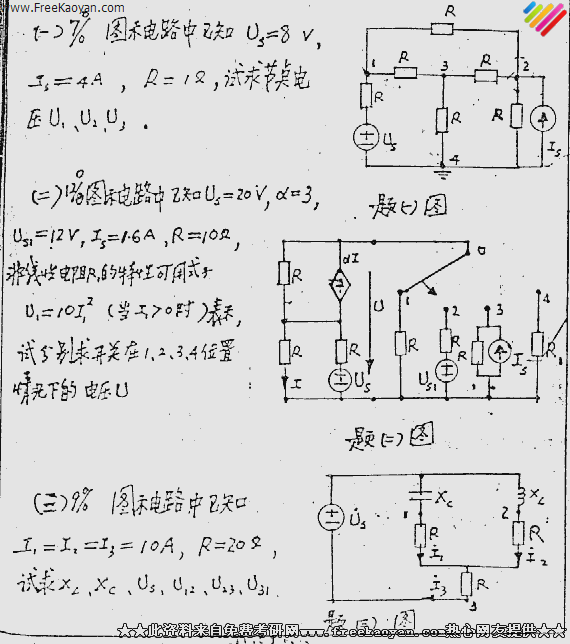 www.FreeKaoyan.com
(一) 7% 图示电路中已知 Us=8V,
Is=4A, R=1Ω, 试求节点电
压U1、U2、U3.
R
1
R
3
R
2
R
R
R
Us
Is
4
题(一)图
(二) 图示电路中已知Us=20V, α=3,
Us1=12V, Is=1.6A, R=10Ω,
非线性电阻R1的特性可用式子
U1=10I1² (当I1>0时)表示,
试分别求开关在1、2、3、4位置
情况下的电压U
R
αI
U
0
1
2
3
4
R
R
R
R
R
R
Us
Us1
Is
I
题(二)图
(三) 9% 图示电路中已知
I1=I2=I3=10A, R=20Ω,
试求XL、XC、Us、U12、U23、U31
Us
XC
XL
1
2
R
R
I1
I2
I3
R
3
题(三)图
★★此资料来自免费考研网www.freekaoyan.com热心网友提供★★